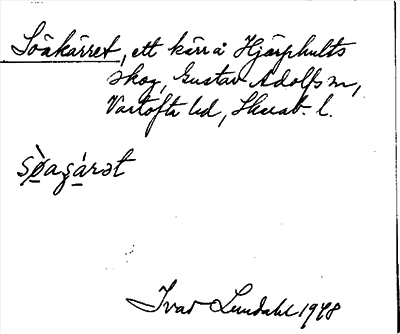 Söäkärret, ett kärr å Hjärphults
skog, Gustav Adolfs sn,
Vartofta hd, Skarab. l.
sø̀agárət
Ivar Lundahl 1948